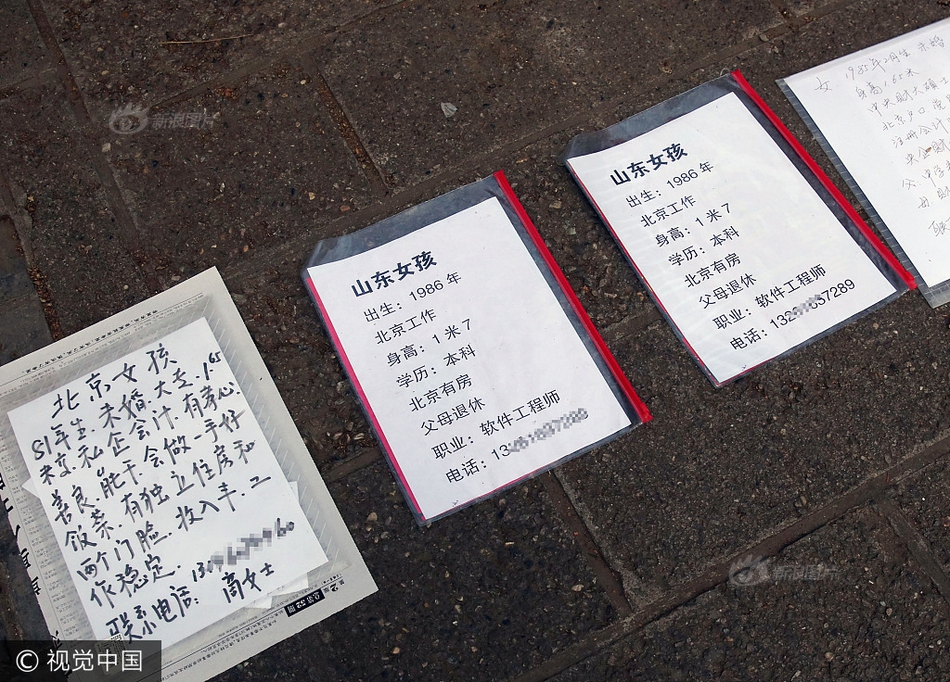 北京女孩
81年生.未婚.大专.1.65
米.京.私企会计.有孝心
善良.能干.会做一手好
饭菜.有独立住房和
两个门脸.收入丰.工
作稳定.
联系电话:
高女士
山东女孩
出生：1986 年
北京工作
身高：1 米 7
学历：本科
北京有房
父母退休
职业：软件工程师
电话：13
山东女孩
出生：1986 年
北京工作
身高：1 米 7
学历：本科
北京有房
父母退休
职业：软件工程师
电话：132 37289
女 1985年2月生 未婚
身高1.65米
中央财大硕士
北京户口 党
注册会计
央企财
父 中学
母
联
新浪图片
新浪图片
© 视觉中国